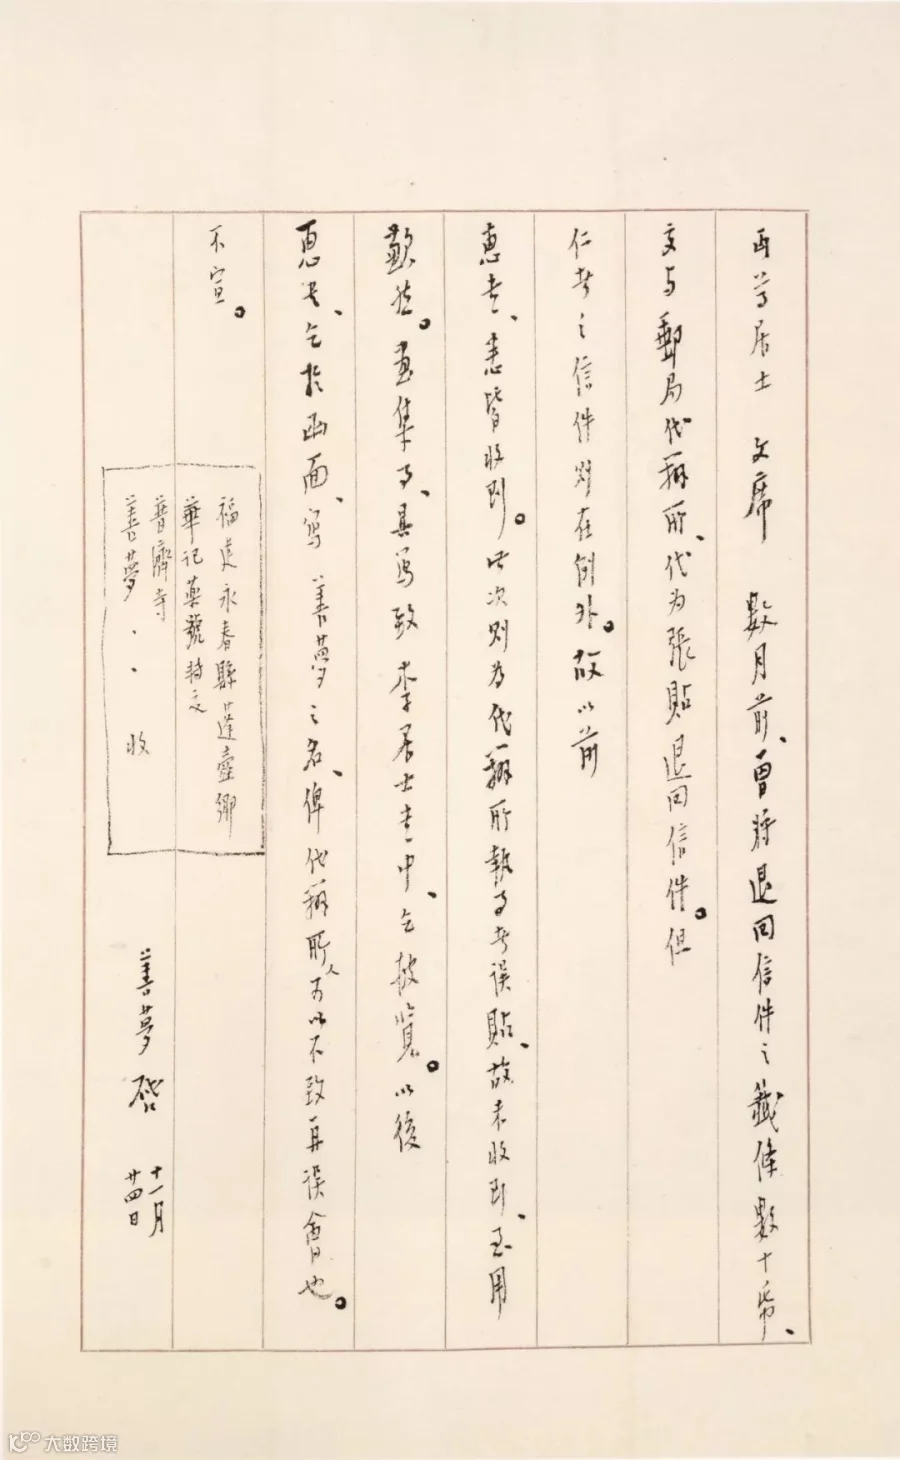 丏尊居士 文席 數月前、曾將退回信件之籤條數十紙、
交與郵局代辦所、代为張貼退回信件。但
仁者之信件則在例外。故以前
惠書、悉皆收到。此次則为代辦所執事者误貼、故未收到、至用
歉然。畫集事、具寫致李居士書中、乞披覽。以後
惠書、乞於函面、寫 善夢之名、俾代辦所人可以不致再误會也。
不宣。
福建永春縣蓬壺鄉
華記藥號轉交
普濟寺
善夢 、、收
善夢 啓
十一月
廿四日
大数跨境